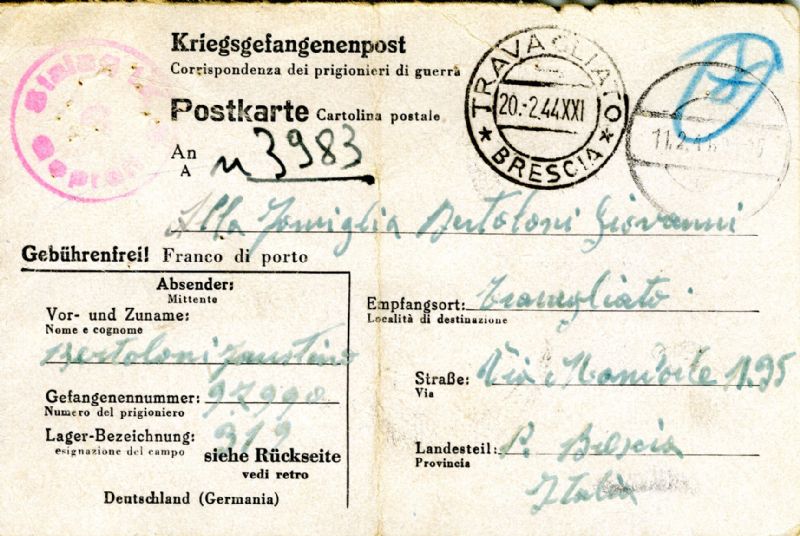 Kriegsgefangenenpost
Corrispondenza dei prigionieri di guerra
Postkarte Cartolina postale
TRAVAGLIATO
20.-2.44XXI
★ BRESCIA ★
Stalag
Geprüft
11.2.4
An
A
n 3983
Alla Famiglia Bertoloni Giovanni
Gebührenfrei! Franco di porto
Absender:
Mittente
Vor- und Zuname:
Nome e cognome
Bertoloni Faustino
Gefangenennummer: 97990
Numero del prigioniero
Lager-Bezeichnung: 319
esignazione del campo
siehe Rückseite
vedi retro
Deutschland (Germania)
Empfangsort: Travagliato
Località di destinazione
Straße: Via N.95
Via
Landesteil: P. Brescia
Provincia
Italia